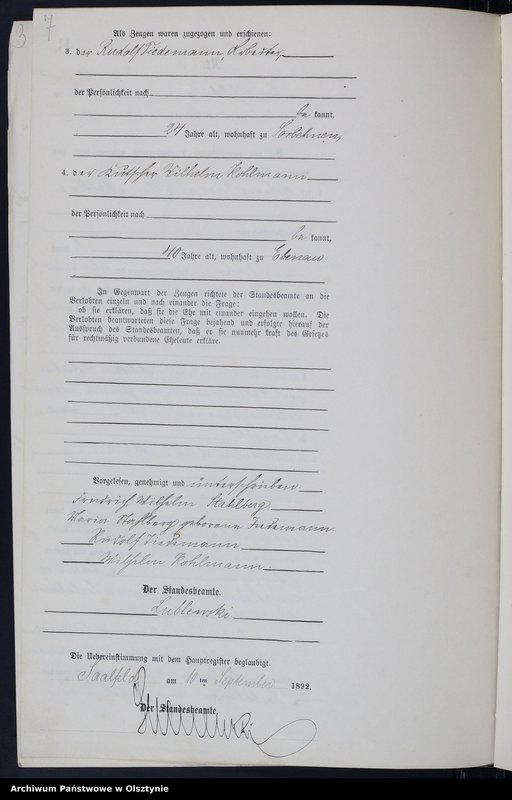 7
3
Als Zeugen waren zugezogen und erschienen:
3. der Rudolf Tiedemann, Arbeiter,
der Persönlichkeit nach
be kannt,
24 Jahre alt, wohnhaft zu Sorbehnen,
4. der Kutscher Wilhelm Kohlmann
der Persönlichkeit nach
be kannt,
40 Jahre alt, wohnhaft zu Ebenau
In Gegenwart der Zeugen richtete der Standesbeamte an die
Verlobten einzeln und nach einander die Frage:
ob sie erklären, daß sie die Ehe mit einander eingehen wollen. Die
Verlobten beantworteten diese Frage bejahend und erfolgte hierauf der
Ausspruch des Standesbeamten, daß er sie nunmehr kraft des Gesetzes
für rechtmäßig verbundene Eheleute erkläre.
Vorgelesen, genehmigt und unterschrieben
Friedrich Wilhelm Stahlberg
Maria Stahlberg geborene Tiedemann
Rudolf Tiedemann
Wilhelm Kohlmann
Der Standesbeamte.
Lublewski
Die Uebereinstimmung mit dem Hauptregister beglaubigt.
Saalfeld am 10 ten September 1892.
Der Standesbeamte.
Archiwum Państwowe w Olsztynie